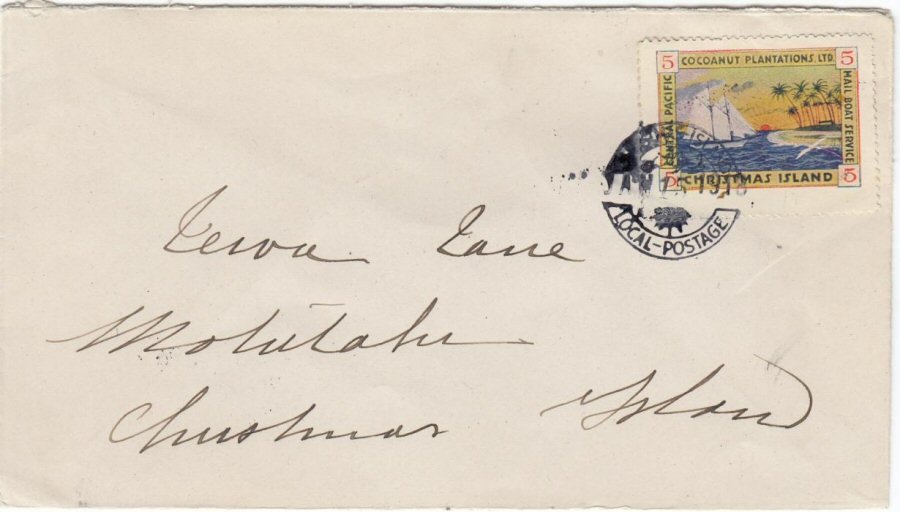 5 COCOANUT PLANTATIONS, LTD. 5
CENTRAL PACIFIC
MAIL BOAT SERVICE
5 CHRISTMAS ISLAND 5
LOCAL-POSTAGE
Tane
Motutabu
Christmas Island